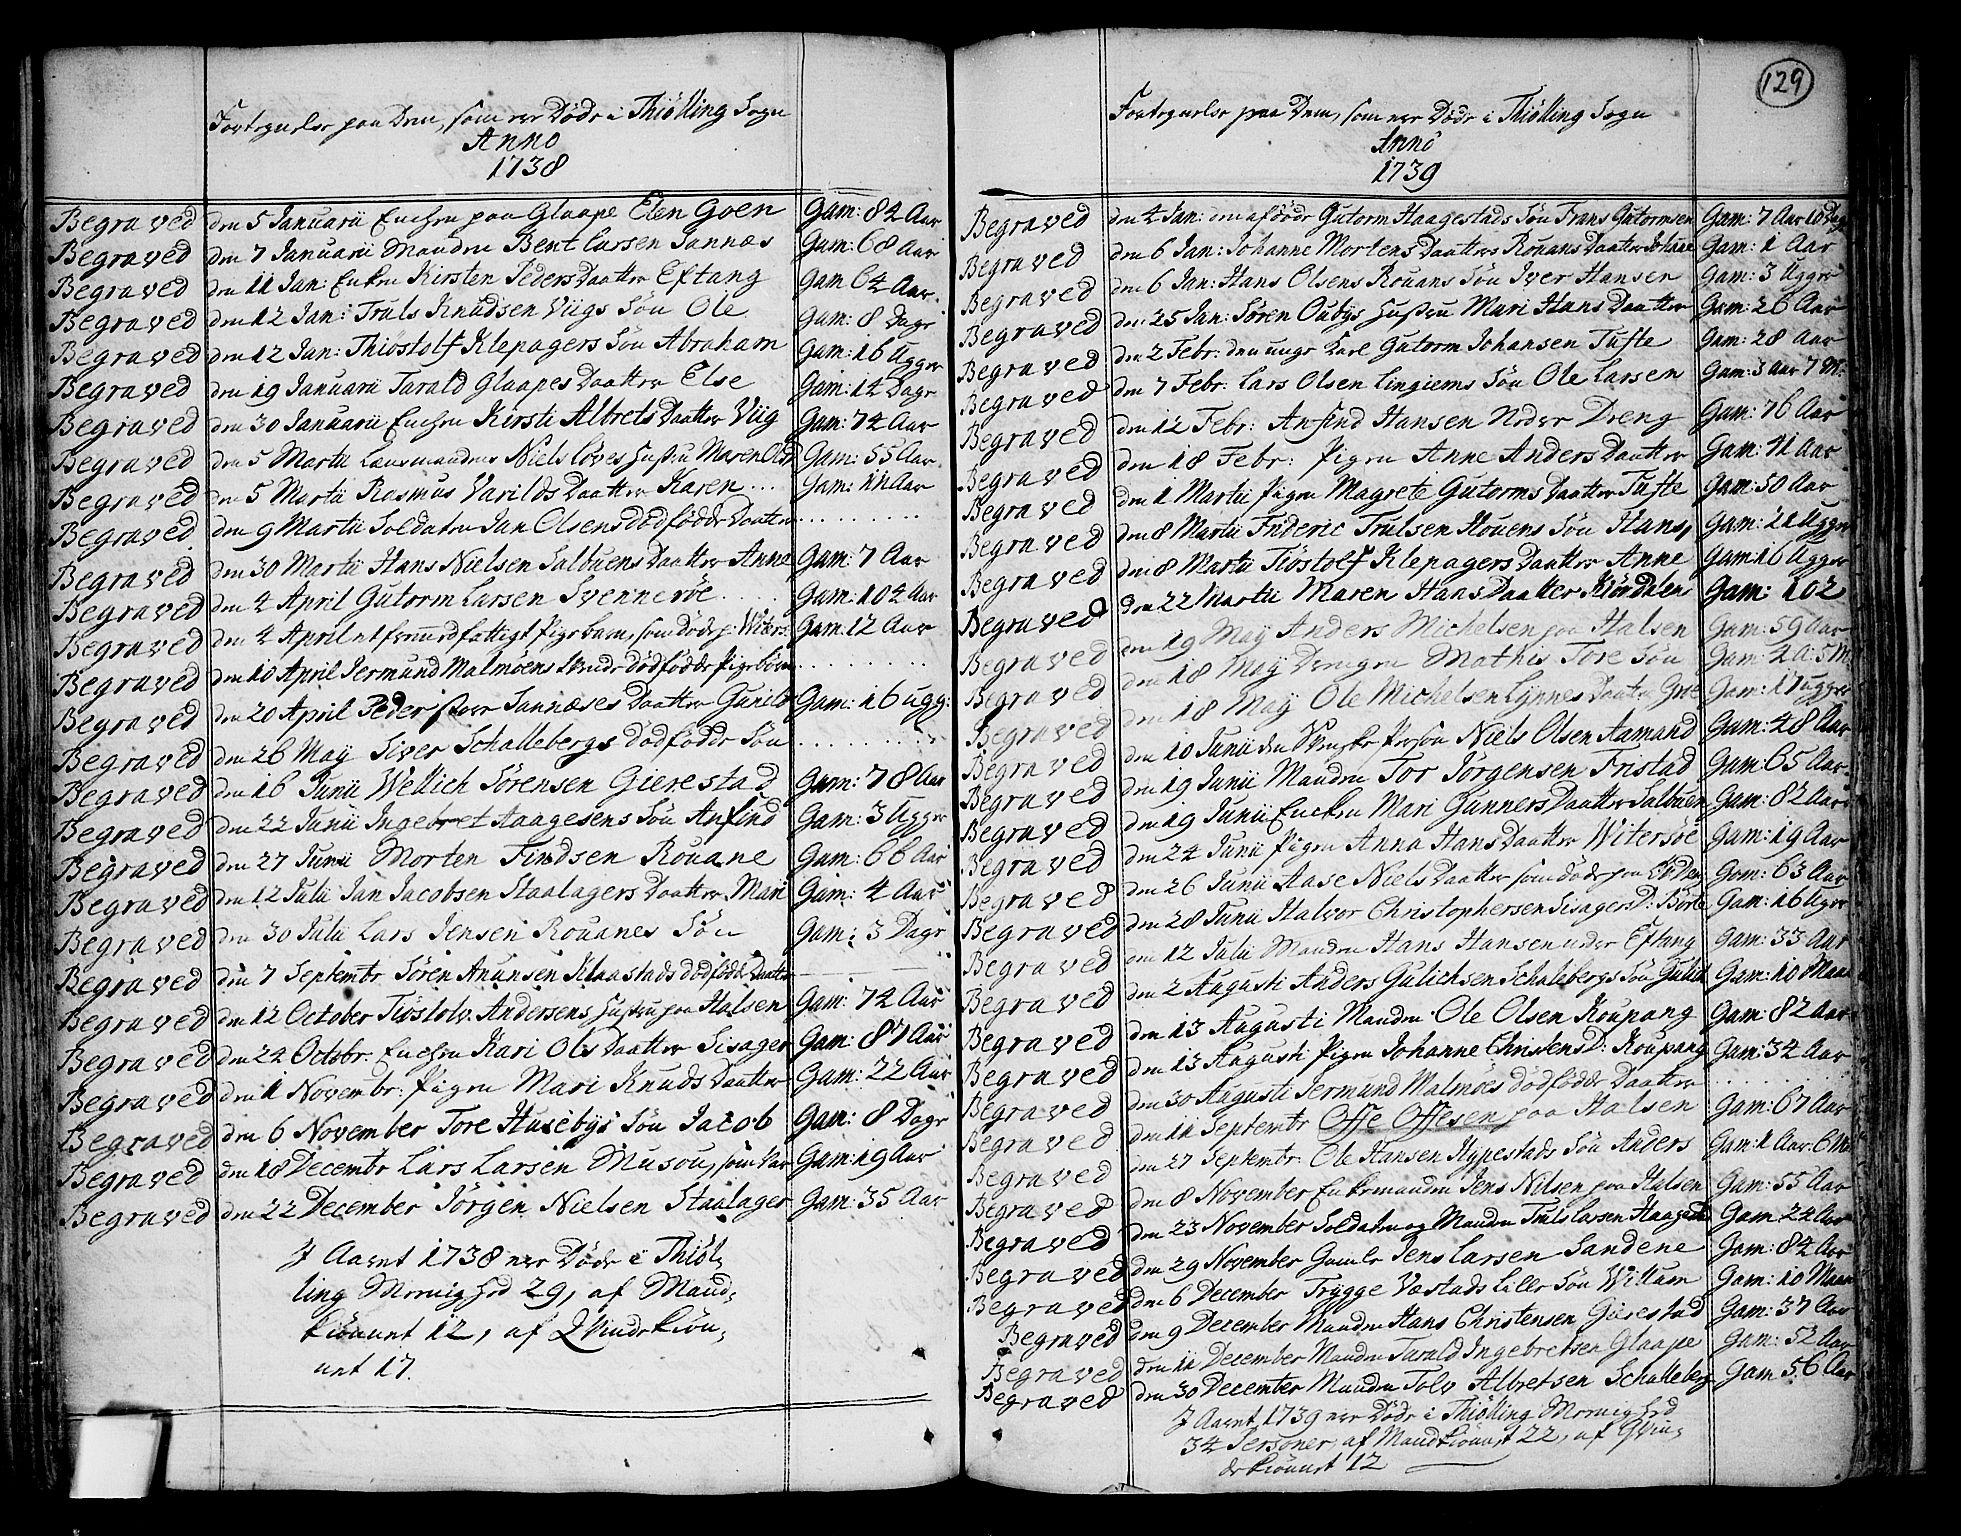 Fortegnelse paa Dem, som ere Döde i Thiölling Sogn
Anno
1738
Begraved den 5 Januarii Enchen paa Glaape Elen Goen Gam: 84 Aar
Begraved den 7 Januarii Manden Bent Larsen Sannæs Gam: 68 Aar
Begraved den 11 Jan: Enken Kirsten Peders Daatter Eftang Gam 64 Aar.
Begraved den 12 Jan: Truls Knudsen Viigs Sön Ole Gam: 8 Dage
Begraved den 12 Jan: Thiöstolf Klepagers Sön Abraham Gam: 16 Ugger
Begraved den 19 Januarii Tarald Glaapes Daatter Else Gam: 14 Dage
Begraved den 30 Januarii Enchen Kirsti Albrets Daatter Viig Gam: 74 Aar
Begraved den 5 Martii Lensmandens Niels Löves Hustru Maren Gam: 55 Aar.
Begraved den 5 Martii Rasmus Varilds Daatter Karen ... Gam: 11 Aar
Begraved den 9 Martii Soldaten Jan Olsens dödfödde Daatter ........
Begraved den 30 Martii Hans Nielsen Salbuens Daatter Anne Gam: 7 Aar
Begraved den 4 April Gutorm Larsen Svenneröe ..... Gam: 104 Aar
Begraved den 4 April et fremmed fattigt Pige barn, som döde p: Witers: Gam: 12 Aar
Begraved den 10 April Jermund Malmöens dödfödde Pige börn .......
Begraved den 20 April Peder store Sannæses Daatter Gunild Gam: 16 ugg:
Begraved den 26 Maÿ Siver Schallebergs dödfödde Sön .......
Begraved den 16 Junii Wellich Sörensen Gierestad Gam: 78 Aar
Begraved den 22 Junii Ingebret Aagesens Sön Anfind Gam: 3 Ugger
Begraved den 27 Junii Morten Findsen Rouane Gam: 66 Aar
Begraved den 12 Julii Jan Jacobsen Staalagers Daatter Mari Gam: 4 Aar
Begraved den 30 Julii Lars Jensen Rouanes Sön Gam: 3 Dage
Begraved den 7 Septembr Sören Anunsen Klaastads dödfödde Daatter
Begraved den 12 October Tiöstolv Andersens Hustru paa Halsen Gam: 74 Aar
Begraved den 24 Octobr: Enchen Kari Ols Daatter Sisager Gam: 87 Aar
Begraved den 1 Novembr: Pigen Mari Knuds Daatter Gam: 22 Aar
Begraved den 6 November Tore Husebys Sön Jacob Gam: 8 Dage
Begraved den 18 Decembr Lars Larsen Musou, som var Gam: 19 Aar
Begraved den 22 December Jörgen Nielsen Staalager Gam: 35 Aar
J Aaret 1738 ere Döde i Thiöl-
ling Menighed 29, af Mand-
kiönnet 12, af Qvindekiön-
net 17.
129
Fortegnelse paa Dem, som ere Döde i Thiölling Sogn
Anno
1739
Begraved den 4 Jan: Gutorm Haagestads Sön Frans Gutormsen Gam: 7 Aar 10 Dag
Begraved den 6 Jan: Johanne Mortens Daatters Rouans Daatter Johanne Gam: 1 Aar
Begraved den 6 Jan: Hans Olsens Rouans Sön Iver Hansen Gam: 3 Ugger
Begraved den 25 Jan: Sören Oubÿs Hustru Mari Hans Daatter Gam: 26 Aar
Begraved den 2 Febr: den unge Karl Gutorm Johansen Tufte Gam: 28 Aar
Begraved den 7 Febr: Lars Olsen Lingiems Sön Ole Larsen Gam: 3 Aar 7 M:
Begraved den 12 Febr: Anfind Hansen Dreng Gam: 76 Aar
Begraved den 18 Febr: Pigen Anne Anders Daatter Gam: 41 Aar
Begraved den 1 Martii Pigen Magrete Gutorms Daatter Tufte Gam: 50 Aar
Begraved den 8 Martii Frideric Trulsen Houens Sön Hans, Gam: 21 Ugger
Begraved den 8 Martii Tiöstolf Klepagers Daatter Anne Gam: 16 Ugger
Begraved den 22 Martii Maren Hans Daatter Kiöndalen Gam: 102
Begraved den 19 Maÿ Anders Michelsen paa Halsen Gam: 59 Aar
Begraved den 18 Maÿ Drengen Mathis Tore Sön Gam: 4 A: 5 M:
Begraved den 18 Maÿ Ole Michelsen Lynnes Daatter Gam: 17 ugger
Begraved den 10 Junii den Person Niels Olsen Aamand Gam: 48 Aar
Begraved den 19 Junii Manden Tor Jörgensen Fristad Gam: 65 Aar.
Begraved den 19 Junii Encken Mari Gunners Daatter Salbuen Gam: 82 Aar
Begraved den 24 Junii Pigen Anna Hans Daatter Witersöe Gam: 19 Aar
Begraved den 26 Junii Aase Niels Daatter som döde paa Gam: 63 Aar
Begraved den 28 Junii Halvor Christophersen Sisagers D: Börte Gam: 16 Uger
Begraved den 12 Julii Manden Hans Hansen neder Eftang Gam: 33 Aar
Begraved den 2 Augusti Anders Gulichsen Schalebergs Sön Gulich Gam: 10 Maan
Begraved den 13 Augusti Manden Ole Olsen Koupang Gam: 82 Aar
Begraved den 13 Augusti Pigen Johanne Christens D: Koupang Gam: 34 Aar
Begraved den 30 Augusti Jermund Malmöes dödfödde Daatter ........
Begraved den 11 Septembr Offe Offesen paa Halsen Gam: 67 Aar
Begraved den 27 Septembr: Ole Hansen Hÿpestads Sön Anders Gam: 1 Aar: 6 M:
Begraved den 8 November Enkemanden Jens Nilsen paa Halsen Gam: 55 Aar
Begraved den 23 November Soldaten og Manden Truls Larsen Gam 24 Aar
Begraved den 29 November Gamle Jens Larsen Sandene Gam: 84 Aar
Begraved den 6 December Trÿgge Væstads Lille Sön Willam Gam: 10 Maan
Begraved den 9 December Manden Hans Christensen Gierestad Gam: 37 Aar
Begraved den 11 December Manden Tarald Ingebretsen Glaape Gam: 52 Aar
Begraved den 30 December Manden Tolv Albretsen Schalleberg Gam 56 Aar
J Aaret 1739 ere Döde i Thiölling Menighed
34 Personer, af Mandkiönnet 22, af Qvin-
dekiönnet 12